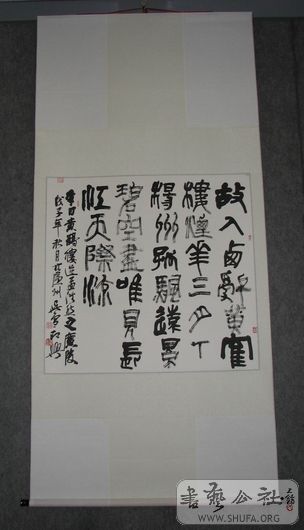 故人西辭黃鶴
樓煙華三月下
揚州孤颿遠景
碧空盡唯見長
江天際流
李白黃鶴樓送孟浩然之廣陵
戊子年秋月
書藝公社
WWW.SHUFA.ORG